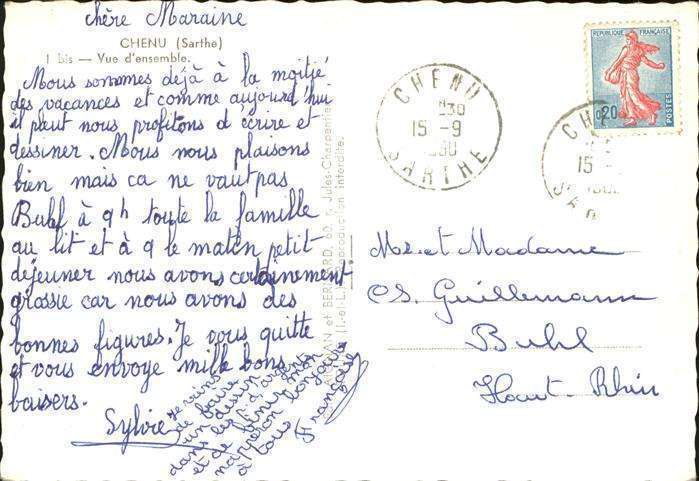 chère Maraine
CHENU (Sarthe)
1 bis — Vue d'ensemble.
Nous sommes déjà à la moitié
des vacances et comme aujourd'hui
il peut nous profitons d'écrire et
dessiner. Nous nous plaisons
bien mais ca ne vaut pas
Buhl à 9h toute la famille
au lit et à 9 le maten petit-
déjeuner nous avons certainement
grossie car nous avons des
bonnes figures. Je vous quitte
et vous envoye mille bons
baisers.
Sylvie
Je viens
de faire
un dessin
dans les
et de
napperon bonjour
à tous
Françoise
et BERNARD, 60, r. Jules-Charpentier
(I.-et-L.) Reproduction interdite.
CHENU
15 -9
SARTHE
REPUBLIQUE FRANÇAISE
0,20
POSTES
CHE
15 -
SAR
Mr et Madame
Os. Guillemann
Buhl
Haut-Rhin